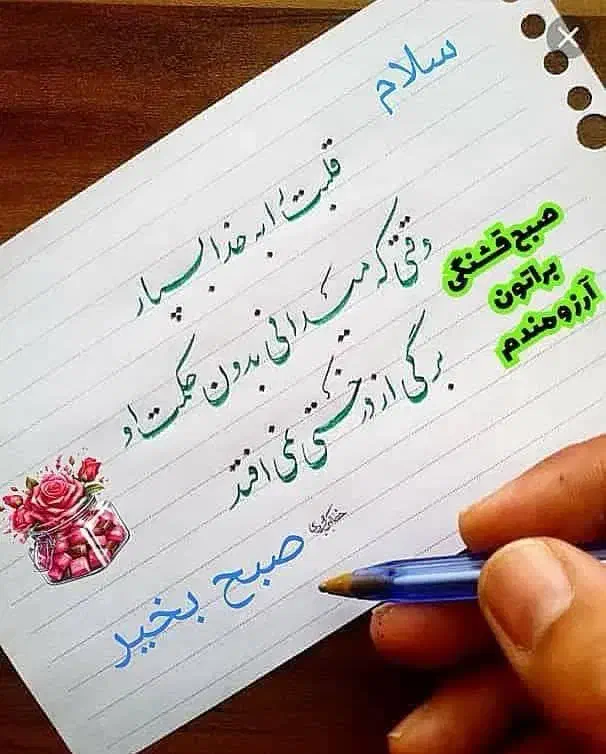 سلام
قلبت را به خدا بسپار
وقتی که میدانی بدون حکمت او
برگی از درختی نمی افتد
صبح قشنگی
براتون
آرزومندم
صبح بخیر